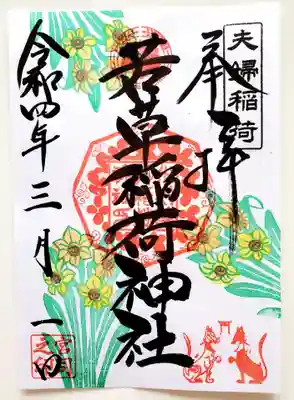 夫婦稲荷
奉拝
若草稲荷神社
令和四年三月一日